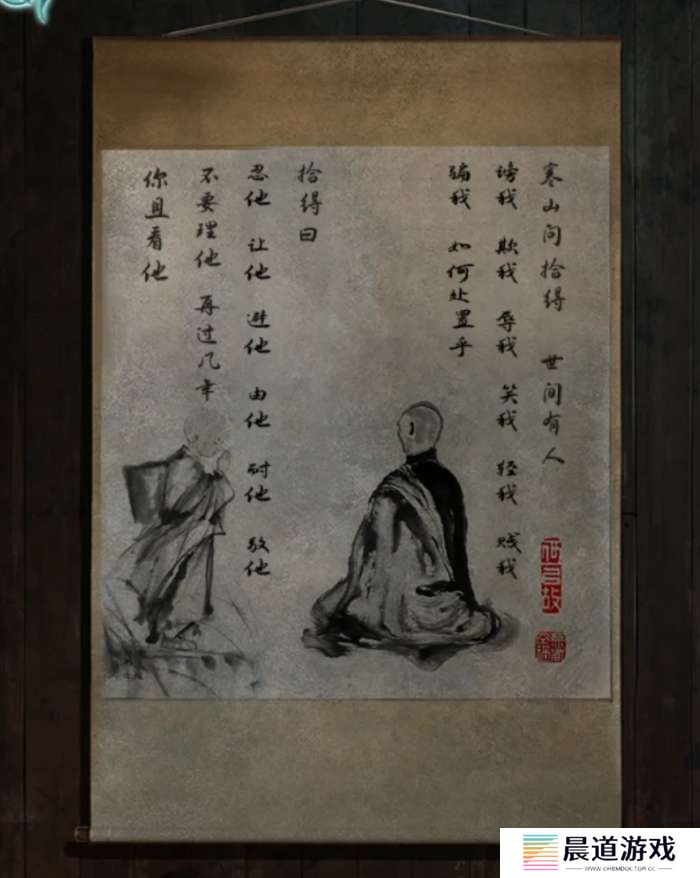 寒山问拾得 世间有人
谤我 欺我 辱我 笑我 轻我 贱我
骗我 如何处置乎
拾得曰
忍他 让他 避他 由他 耐他 敬他
不要理他 再过几年
你且看他
晨道游戏
WWW.CHEMDOLTOR.CC